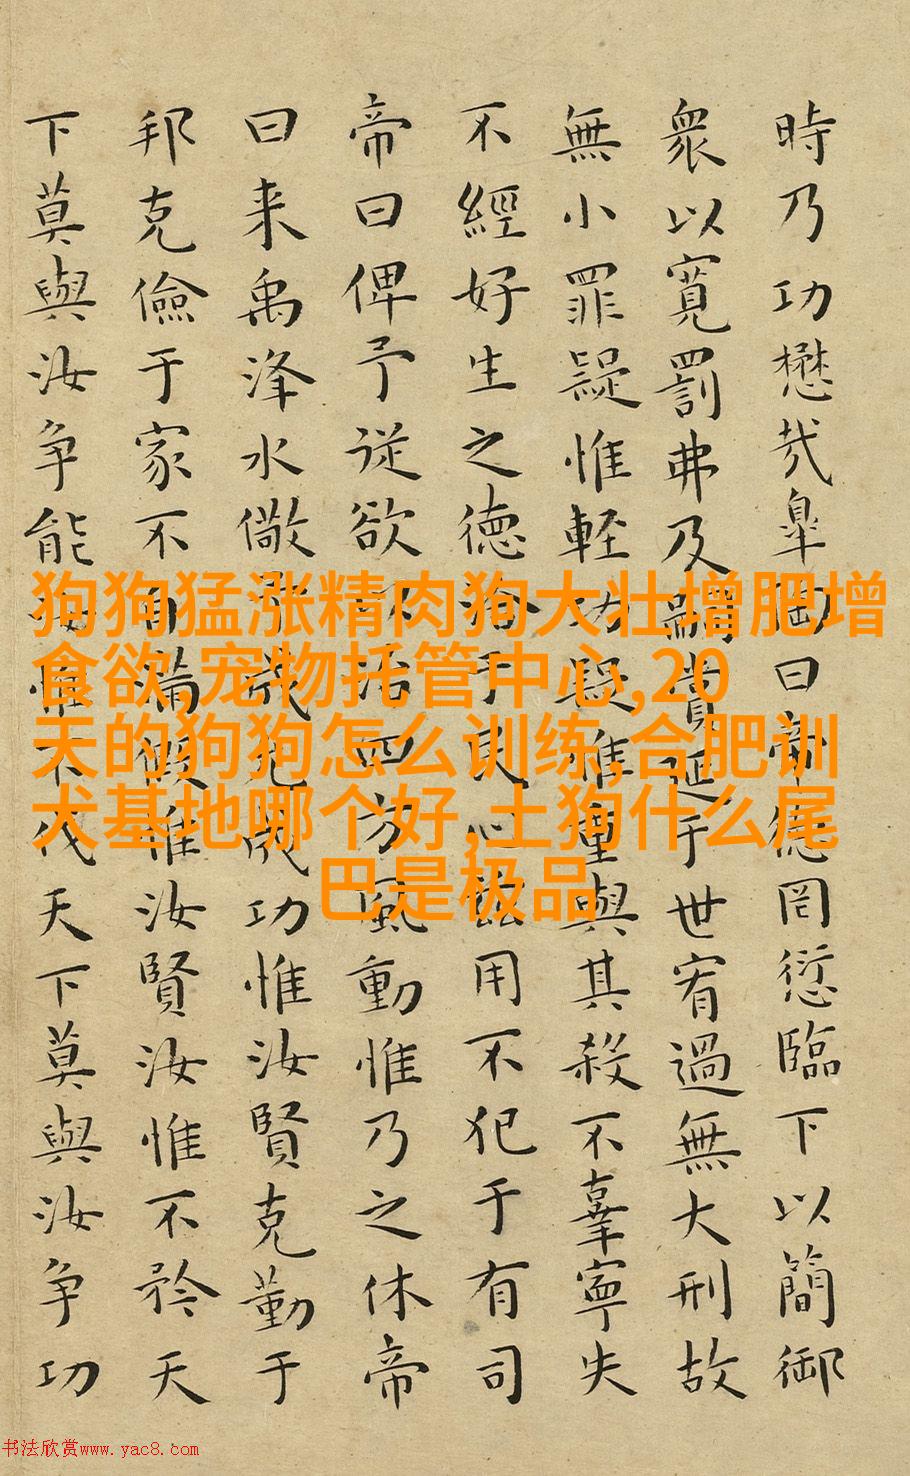 時乃功懋哉皐陶曰帝德罔愆臨下以簡御
衆以寬罰弗及嗣賞延于世宥過無大刑故
無小罪疑惟輕功疑惟重與其殺不辜寧失
不經好生之德洽于民心茲用不犯于有司
帝曰俾予従欲以治四方風動惟乃之休帝
曰来禹洚水儆予成允成功惟汝賢克勤于
邦克儉于家不自滿假惟汝賢汝惟不矜天
下莫與汝争能汝惟不伐天下莫與汝争功
狗狗猛涨精肉狗大壮增肥增
食欲,宠物托管中心,20
天的狗狗怎么训练,合肥训
犬基地哪个好,土狗什么尾
巴是极品
书法欣赏www.yac8.com